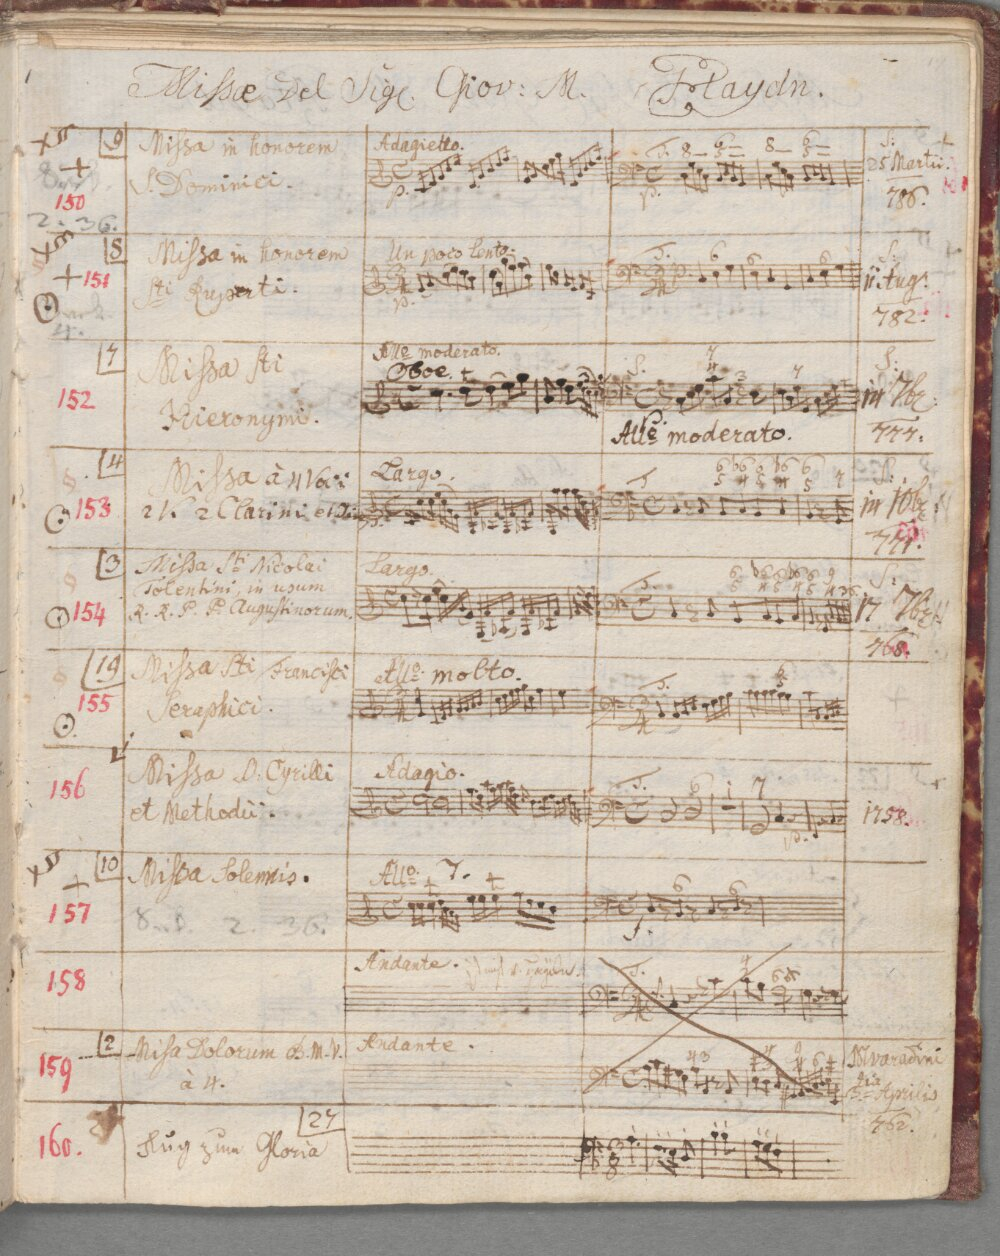 Missæ del Sigr. Giov: M. Haydn.
9
150
Missa in honorem
S. Dominici.
Adagietto.
p.
S.
p.
S:
25 Martii.
786.
2. 36.
8
151
Missa in honorem
Sti Ruperti.
Un poco lento.
p.
S.
p.
6 6 6
S:
11 Aug:
782.
4.
7
152
Missa Sti
Hieronymi.
Allo moderato.
Oboe.
S.
Allo moderato.
S:
14 7br:
777.
4
153
Missa à 4 Voc:
2 V. 2 Clarini et
Largo.
S.
S:
14 10br:
771.
3
154
Missa Sti Nicolai
Tolentini, in usum
R. R. P. P. Augustinorum
Largo.
S.
S:
17 7br
768.
19
155
Missa Sti Francisci
Seraphici.
Allo: molto.
S.
156
Missa S. Cyrilli
et Methodii.
Adagio.
S.
6 7
1758.
10
157
Missa Solemnis.
Allo: 7.
6 6
f.
2. 36.
158
Andante.
S.
2
159
Missa Dolorum B. M. V.
à 4.
Andante.
43
M. Varadini
3tia Aprilis
762.
27
160.
Fug zum Gloria